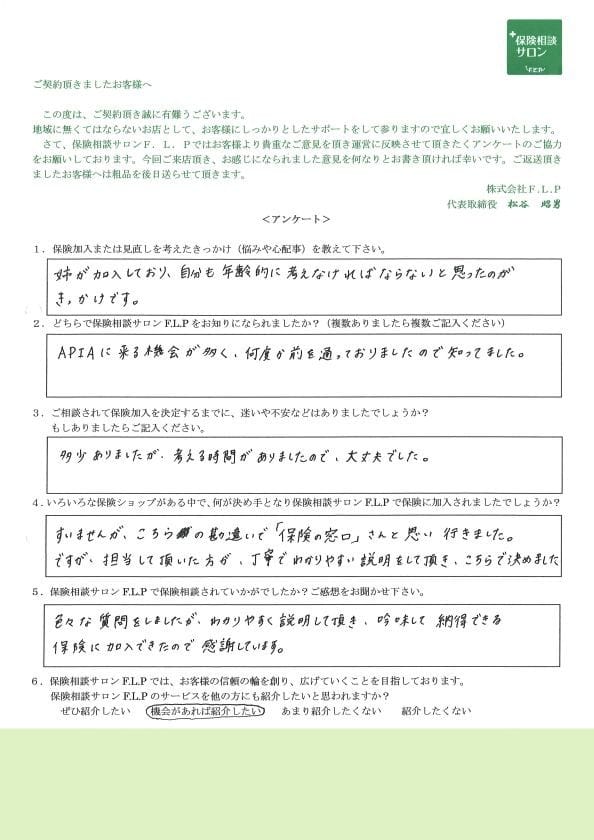 保険相談
サロン
F.L.P
ご契約頂きましたお客様へ
この度は、ご契約頂き誠に有難うございます。
地域に無くてはならないお店として、お客様にしっかりとしたサポートをして参りますので宜しくお願いいたします。
さて、保険相談サロンF．L．Pではお客様より貴重なご意見を頂き運営に反映させて頂きたくアンケートのご協力
をお願いしております。今回ご来店頂き、お感じになられました意見を何なりとお書き頂ければ幸いです。ご返送頂き
ましたお客様へは粗品を後日送らせて頂きます。
株式会社F.L.P
代表取締役 松谷 昭男
＜アンケート＞
１．保険加入または見直しを考えたきっかけ（悩みや心配事）を教えて下さい。
姉が加入しており、自分も年齢的に考えなければならないと思ったのが
きっかけです。
２．どちらで保険相談サロンF.L.Pをお知りになられましたか？（複数ありましたら複数ご記入ください）
APIAに来る機会が多く、何度か前を通っておりましたので知ってました。
３．ご相談されて保険加入を決定するまでに、迷いや不安などはありましたでしょうか？
もしありましたらご記入ください。
多少ありましたが、考える時間がありましたので、大丈夫でした。
４.いろいろな保険ショップがある中で、何が決め手となり保険相談サロンF.L.Pで保険に加入されましたでしょうか？
すいませんが、こちらの勘違いで「保険の窓口」さんと思い行きました。
ですが、担当して頂いた方が、丁寧でわかりやすい説明をして頂き、こちらで決めました
５．保険相談サロンF.L.Pで保険相談されていかがでしたか？ご感想をお聞かせ下さい。
色々な質問をしましたが、わかりやすく説明して頂き、吟味して納得できる
保険に加入できたので感謝しています。
６．保険相談サロンF.L.Pでは、お客様の信頼の輪を創り、広げていくことを目指しております。
保険相談サロンF.L.Pのサービスを他の方にも紹介したいと思われますか？
ぜひ紹介したい 機会があれば紹介したい あまり紹介したくない 紹介したくない